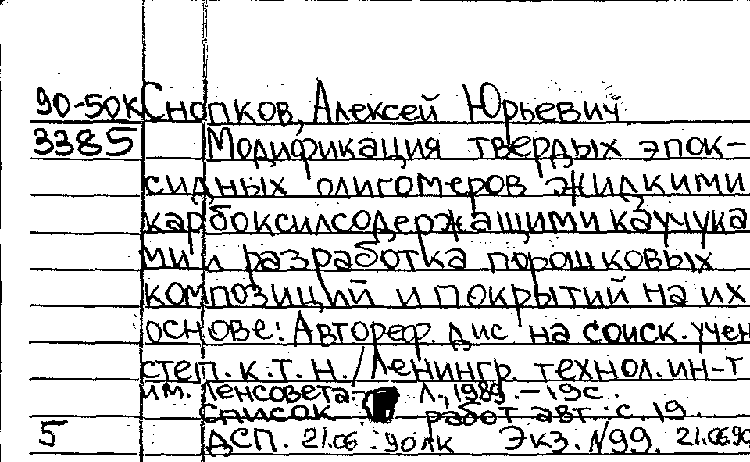 90-50к Снопков, Алексей Юрьевич
3385 Модификация твердых эпок-
сидных олигомеров жидкими
карбоксилсодержащими каучука
ми и разработка порошковых
композиций и покрытий на их
основе: Автореф. дис. на соиск. учен
степ. к.т.н. / Ленингр. технол. ин-т
им. Ленсовета. Л., 1989. - 19с.
список работ авт.: с. 19.
5 ДСП. 21.06. Экз. №99. 21.06.90